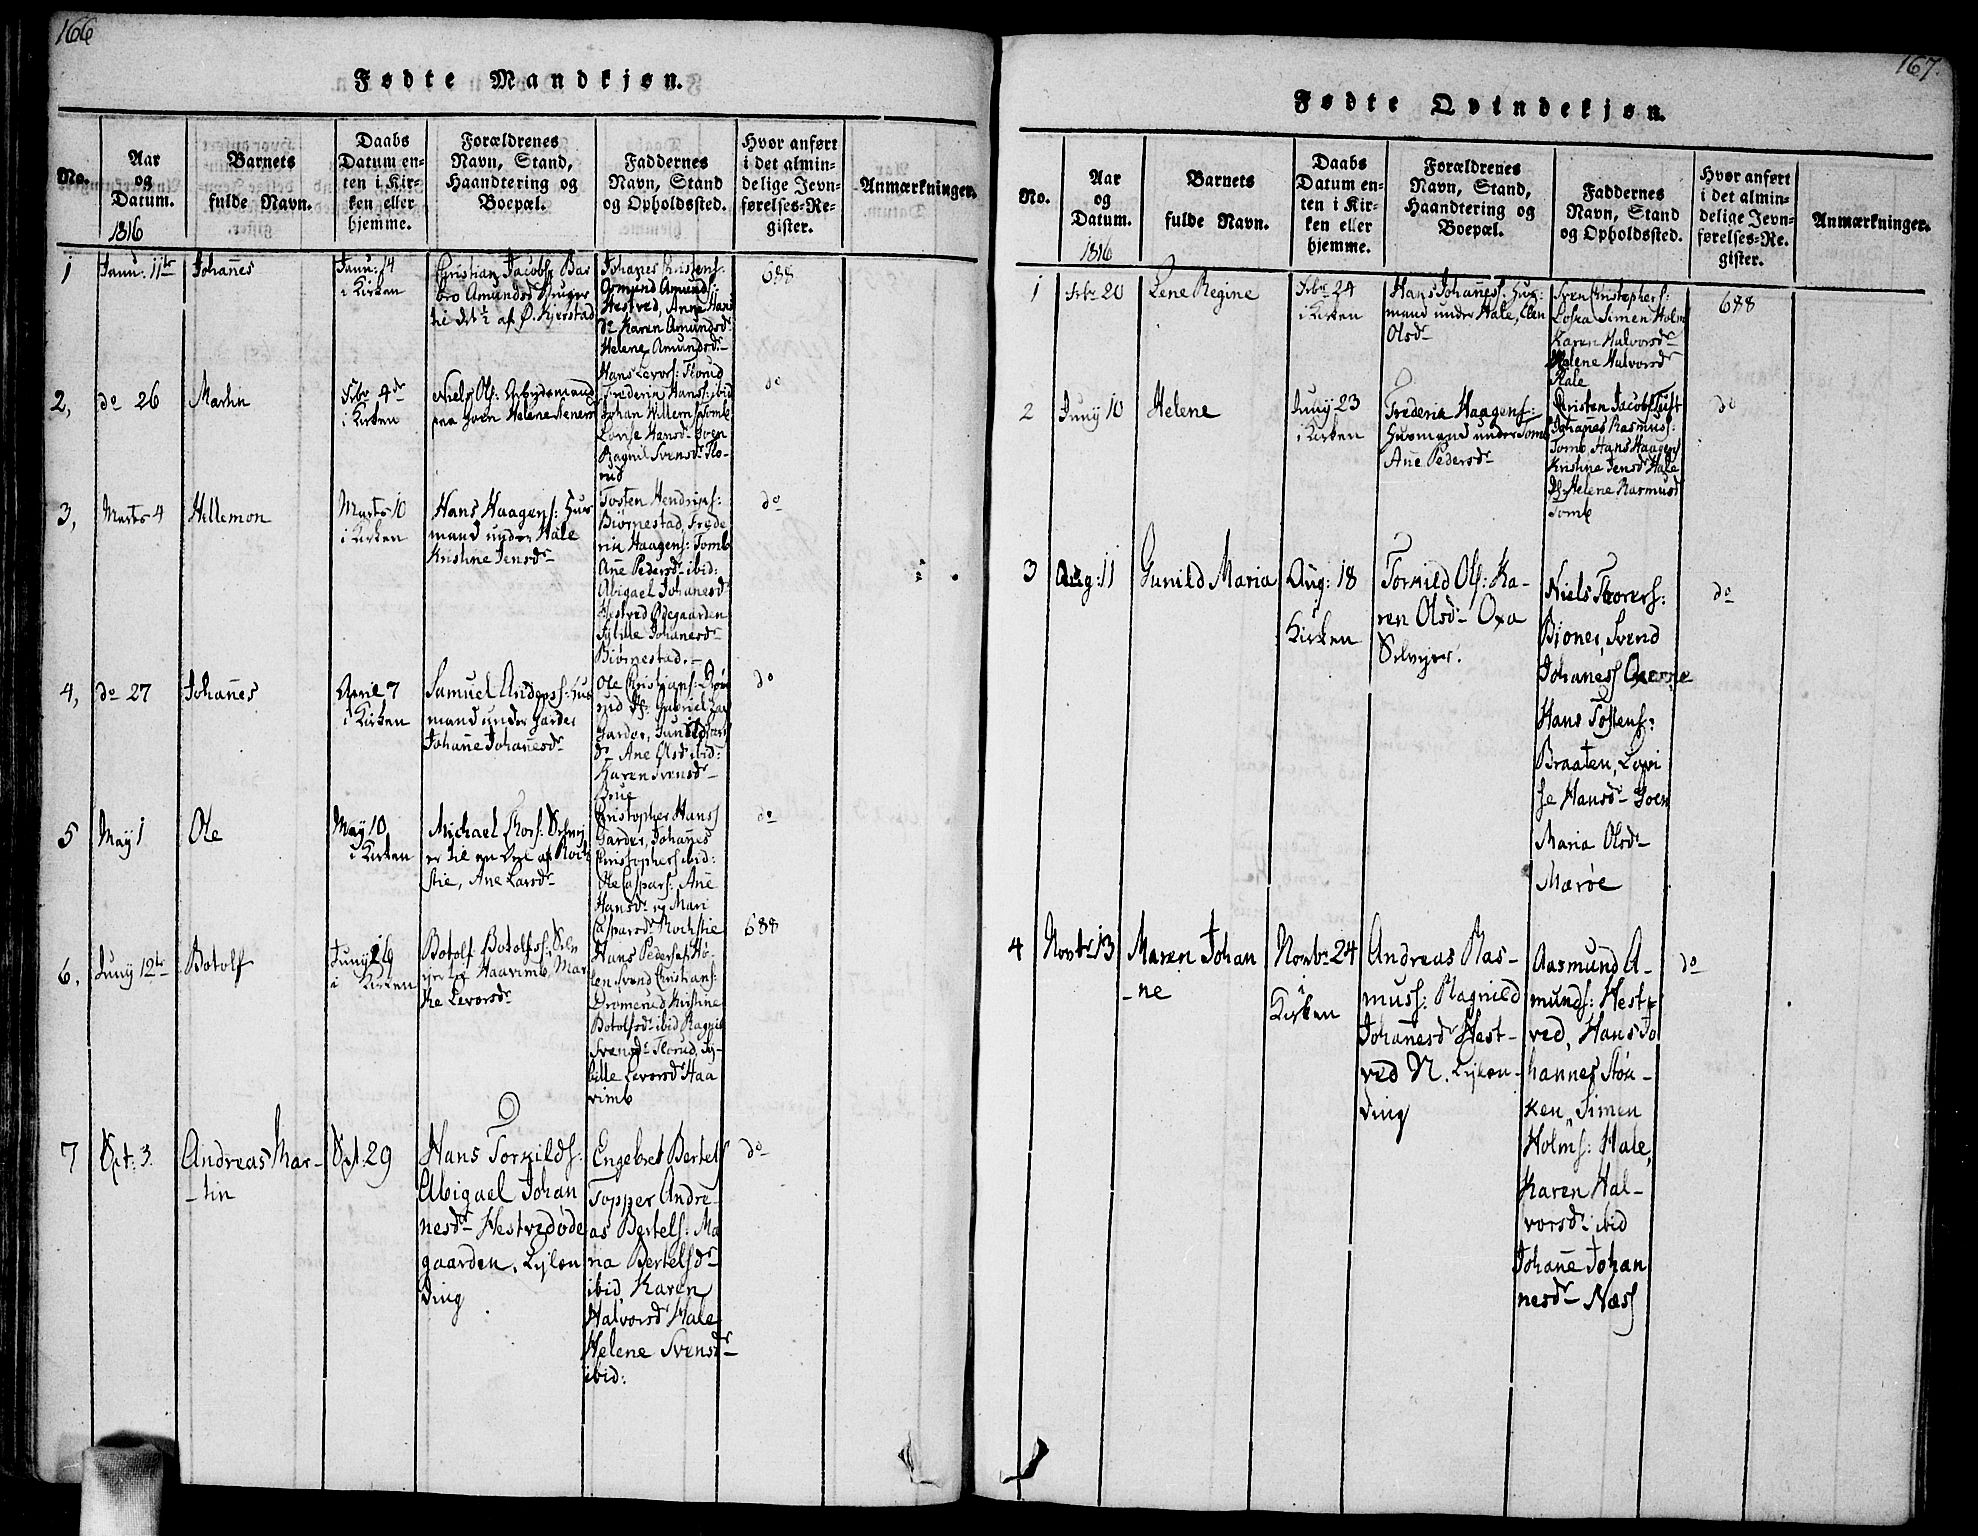 166
Fødte Mandkjøn.
No.
Aar
og
Datum.
1816
Barnets
fulde Navn.
Daabs
Datum en-
ten i Kir-
ken eller
hjemme.
Forældrenes
Navn, Stand,
Haandtering og
Boepæl.
Faddernes
Navn, Stand
og Opholdssted.
Hvor anført
i det almin-
delige Jevn-
førelses-Re-
gister.
Anmærkninger.
1
Janu: 11te
Johan̄es
Janu: 14
i Kirken
Christian Jacobs: Bar
bro Amundsd
til det ½ af Ø. Kjerstad
Johan̄es Christens:
Asmund Amunds:
Hestved, Anne Hans
dr Karen Amundsdr
Helene Amundsdr
688
2,
do 26
Martin
Febr 4de
i Kirken
Niels Ols: Arbeidsmand
paa Goen Helene Stens
Hans Levors: Florud
Frederik Hanss: ibid
Johan Willem Tomb
Lovise Hansdr Goen
Ragnil Svensdr Flo-
rud
do
3,
Marts 4
Hellemon
Marts 10
i Kirken
Hans Haagens: Huus
mand under Hale
Kristine Jensdr
Tosten Hendriks:
Biørnestad, Frede
rik Haagens: Tomb
An̄e Pedersdr ibid:
Abigael Johanesdr
Hestved Ødegaarden
Sybille Johanesdr
Biørnestad.
do
4,
do 27
Johan̄es
April 7
i Kirken
Samuel Anderss: Huus
mand under Garder
Johan̄e Johan̄esdr
Ole Christians: Drøm
rud Gabriel
Garder, Gunild
dr Ane Olsdr ibid:
Karen Svensdr
Brue
do
5
May 1
Ole
May 10
i Kirken
Michael Thors: Selvej
er til en Deel af Rock
stie, Ane Larsdr
Christopher Hanss
Garder, Johan̄es
Christophers ibid:
Ole Caspars: An̄e
Hansdr og Mari
Caspersdr Rochstie
do
6,
Juny 12te
Botolf
Juny 16
i Kirken
Botolf Botolfss: Selv
ejer til Haavimb, Mar
the Levorsdr
Hans Peders: Hø-
len Svend Christians:
Dromerud Kristine
Botolfsdr ibid Ragnil
Svensdr Florud, Sy-
bille Levorsdr Haa
vimb
688
7
Sept: 3.
Andreas Mar-
-tin
Sept. 29
Hans Torkilds:
Abigael Johan
nesdr Hestvedøde
gaarden. Lylæn
ding
Engebret Bertels
Topper Andre-
as Bertels: Ma
ria Bertelsdr
ibid, Karen
Halvorsdr Hale
Helene Svensdr
ibid:
do
167.
Fødte Qvindekjøn.
No.
Aar
og
Datum.
1816
Barnets
fulde Navn.
Daabs
Datum en-
ten i Kir-
ken eller
hjemme.
Forældrenes
Navn, Stand,
Haandtering og
Boepæl.
Faddernes
Navn, Stand
og Opholdssted.
Hvor anført
i det almin-
delige Jevn-
førelses-Re-
gister.
Anmærkninger.
1
Febr 20
Lene Regine
Febr 24
i Kirken
Hans Johan̄ess: Huus:
mand under Hale, Elen
Olsdr
Sven Christophers:
Loska Simen Holms
Karen Halvorsdr
Helene Halvorsdr
Hale
688
2
Juny 10
Helene
Juny 23
i Kirken
Frederik Haagens:
Huusmand under Tomb
An̄e Pedersdr
Christen Jacobs Tuft
Johan̄es Rasmuss:
Tomb Hans Haagens
Kristine Jensdr Hale
Helene Rasmusdr
Tomb
do
3
Aug: 11
Gunild Maria
Aug: 18
Kirken
Torkild Ols: Ka-
ren Olsdr Oxa
Selvejer.
Niels Torers:
Bjoner, Svend
Johaness Oxerne
Hans Tostens:
Braaten, Lovi
se Hansdr Goen
Maria Olsdr
Mærøe
do
4
Novbr 13
Maren Johan
-ne
Novbr 24
i
Kirken
Andreas Ras-
muss: Ragnild
Johan̄esdr Hest-
ved N. Lylæn-
ding
Aasmund A-
munds: Hest-
ved, Hans Jo
hannes Støn-
ken, Simen
Holms: Hale,
Karen Hal-
vorsdr ibid
Johan̄e Johan
nesdr Næss
do